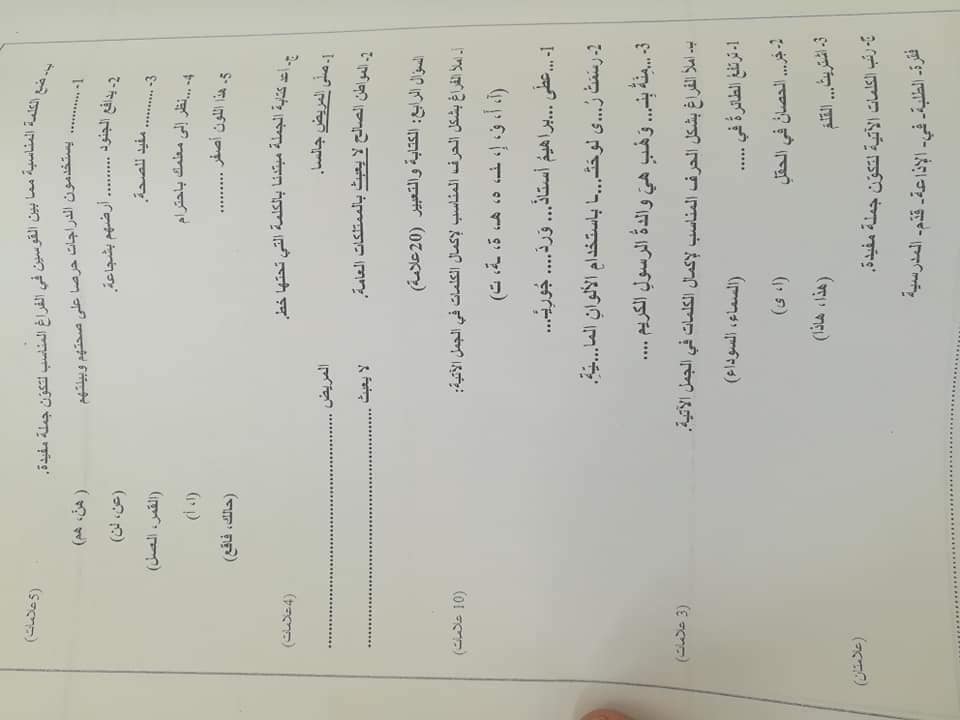 ب- ضع الكلمة المناسبة مما بين القوسين في الفراغ المناسب لتكوّن جملة مفيدة. (5علامات)
1- ............ يستخدمون الدراجات حرصا على صحتهم وبيئتهم (هن، هم)
2- يدافع الجنود ......... أرضهم بشجاعة. (عن، لن)
3- ......... مفيد للصحة. (القمر، العسل)
4- ...نظر إلى معلمك باحترام (ا، أ)
5- هذا اللون أصفر ......... (حالك، فاقع)
ج- أعد كتابة الجملة مبتدئا بالكلمة التي تحتها خط. (4علامات)
1- صلّى المريض جالسا. المريض ........................................
2- المواطن الصالح لا يعبث بالممتلكات العامة. لا يعبث ........................................
السؤال الرابع: الكتابة والتعبير (20علامة)
أ- املأ الفراغ بشكل الحرف المناسب لإكمال الكلمات في الجمل الآتية: (10 علامات)
(أ، أ، ؤ، إ، ئـ، ه، هـ، ة، ـة، ت)
1- ...عطى ...براهيمُ أستاذَ... وَردَ.... جُوريّـ...
2- رسَمَتْ رُ...ى لوحَتَـ...ـا باستخدام الألوانِ الما...يّةِ.
3- ...مِنةُ بنـ... وَهْبٍ هيَ والدةُ الرسولِ الكريمِ ....
ب- املأ الفراغ بشكل الحرف المناسب لإكمال الكلمات في الجمل الآتية. (3 علامات)
1- ترتفعُ الطائرةُ في ..... (السماء، السوداء)
2- جَر... الحصان في الحقلِ (ا، ى)
3- اشتريتُ... القلمَ (هذا، هاذا)
ج- رتّب الكلمات الآتية لتكوّن جملة مفيدة. (علامتان)
فقرة- الطلبة- في- الإذاعة- قدّم- المدرسية